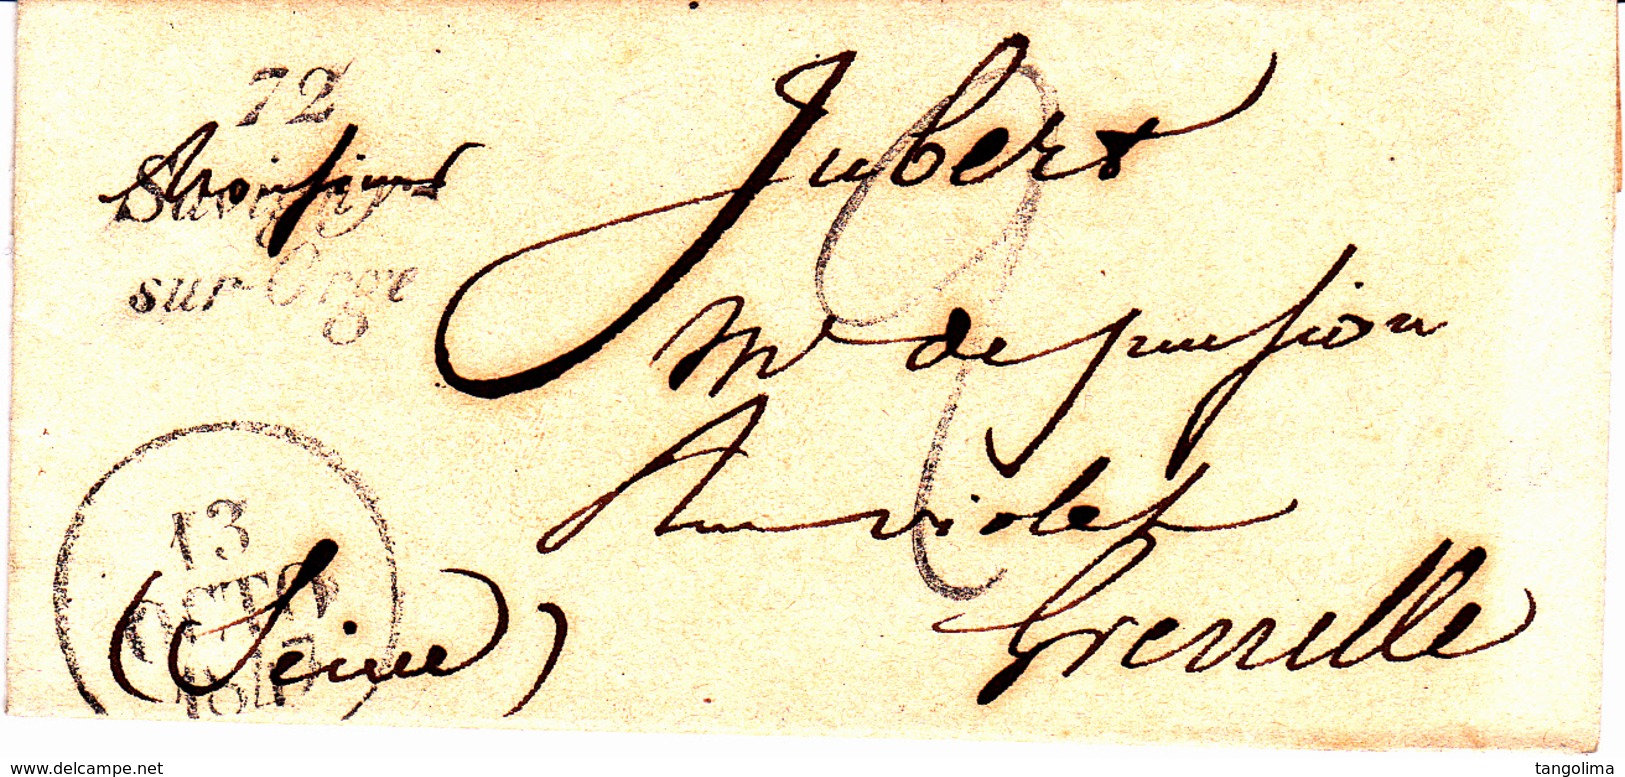 72
Savigny
sur-Orge
Monsieur
Jubert
Mr de pension
Rue violet
Grenelle
(Seine)
13
OCTO
184
www.delcampe.net
tangolima